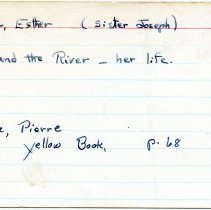 , Esther (Sister Joseph)
and the River - her life.
, Pierre
Yellow Book, p. 68